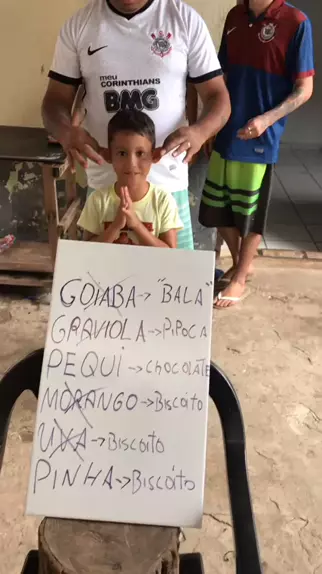 meu
CORINTHIANS
BMG
GOIABA→"BALA"
GRAVIOLA→PiPOCA
PEQUI→CHOCOLATE
MORANGO→Biscoito
UVA→Biscoito
PiNHA→Biscoito